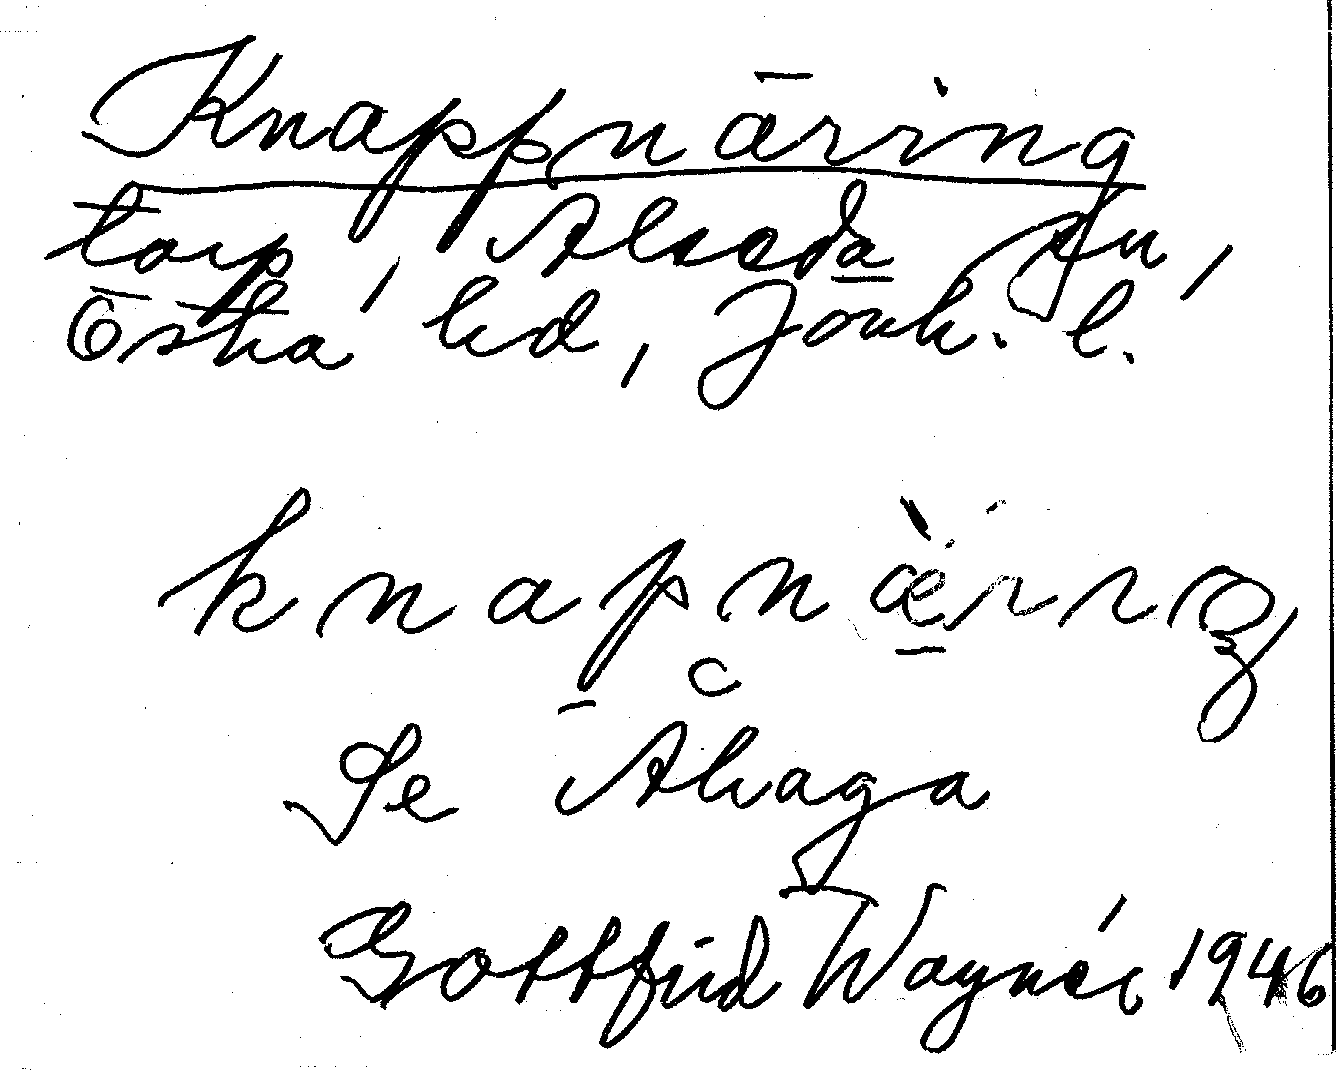 Knappnäring
torp, Alseda sn,
Östra hd, Jönk. l.
knapnæ̀rıŋ
Se Åhaga
Gottfrid Waynér 1946